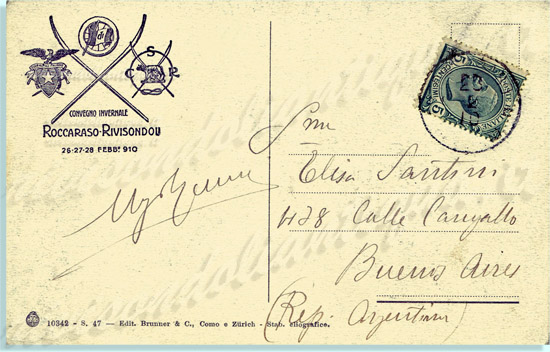 C S R
CONVEGNO INVERNALE
ROCCARASO-RIVISONDOLI
26-27-28 FEBB. 910
Elisa Santini
428 Calle Cangallo
Buenos Aires
(Rep. Argentina)
10342 - S. 47 — Edit. Brunner & C., Como e Zürich - Stab. eliografico.